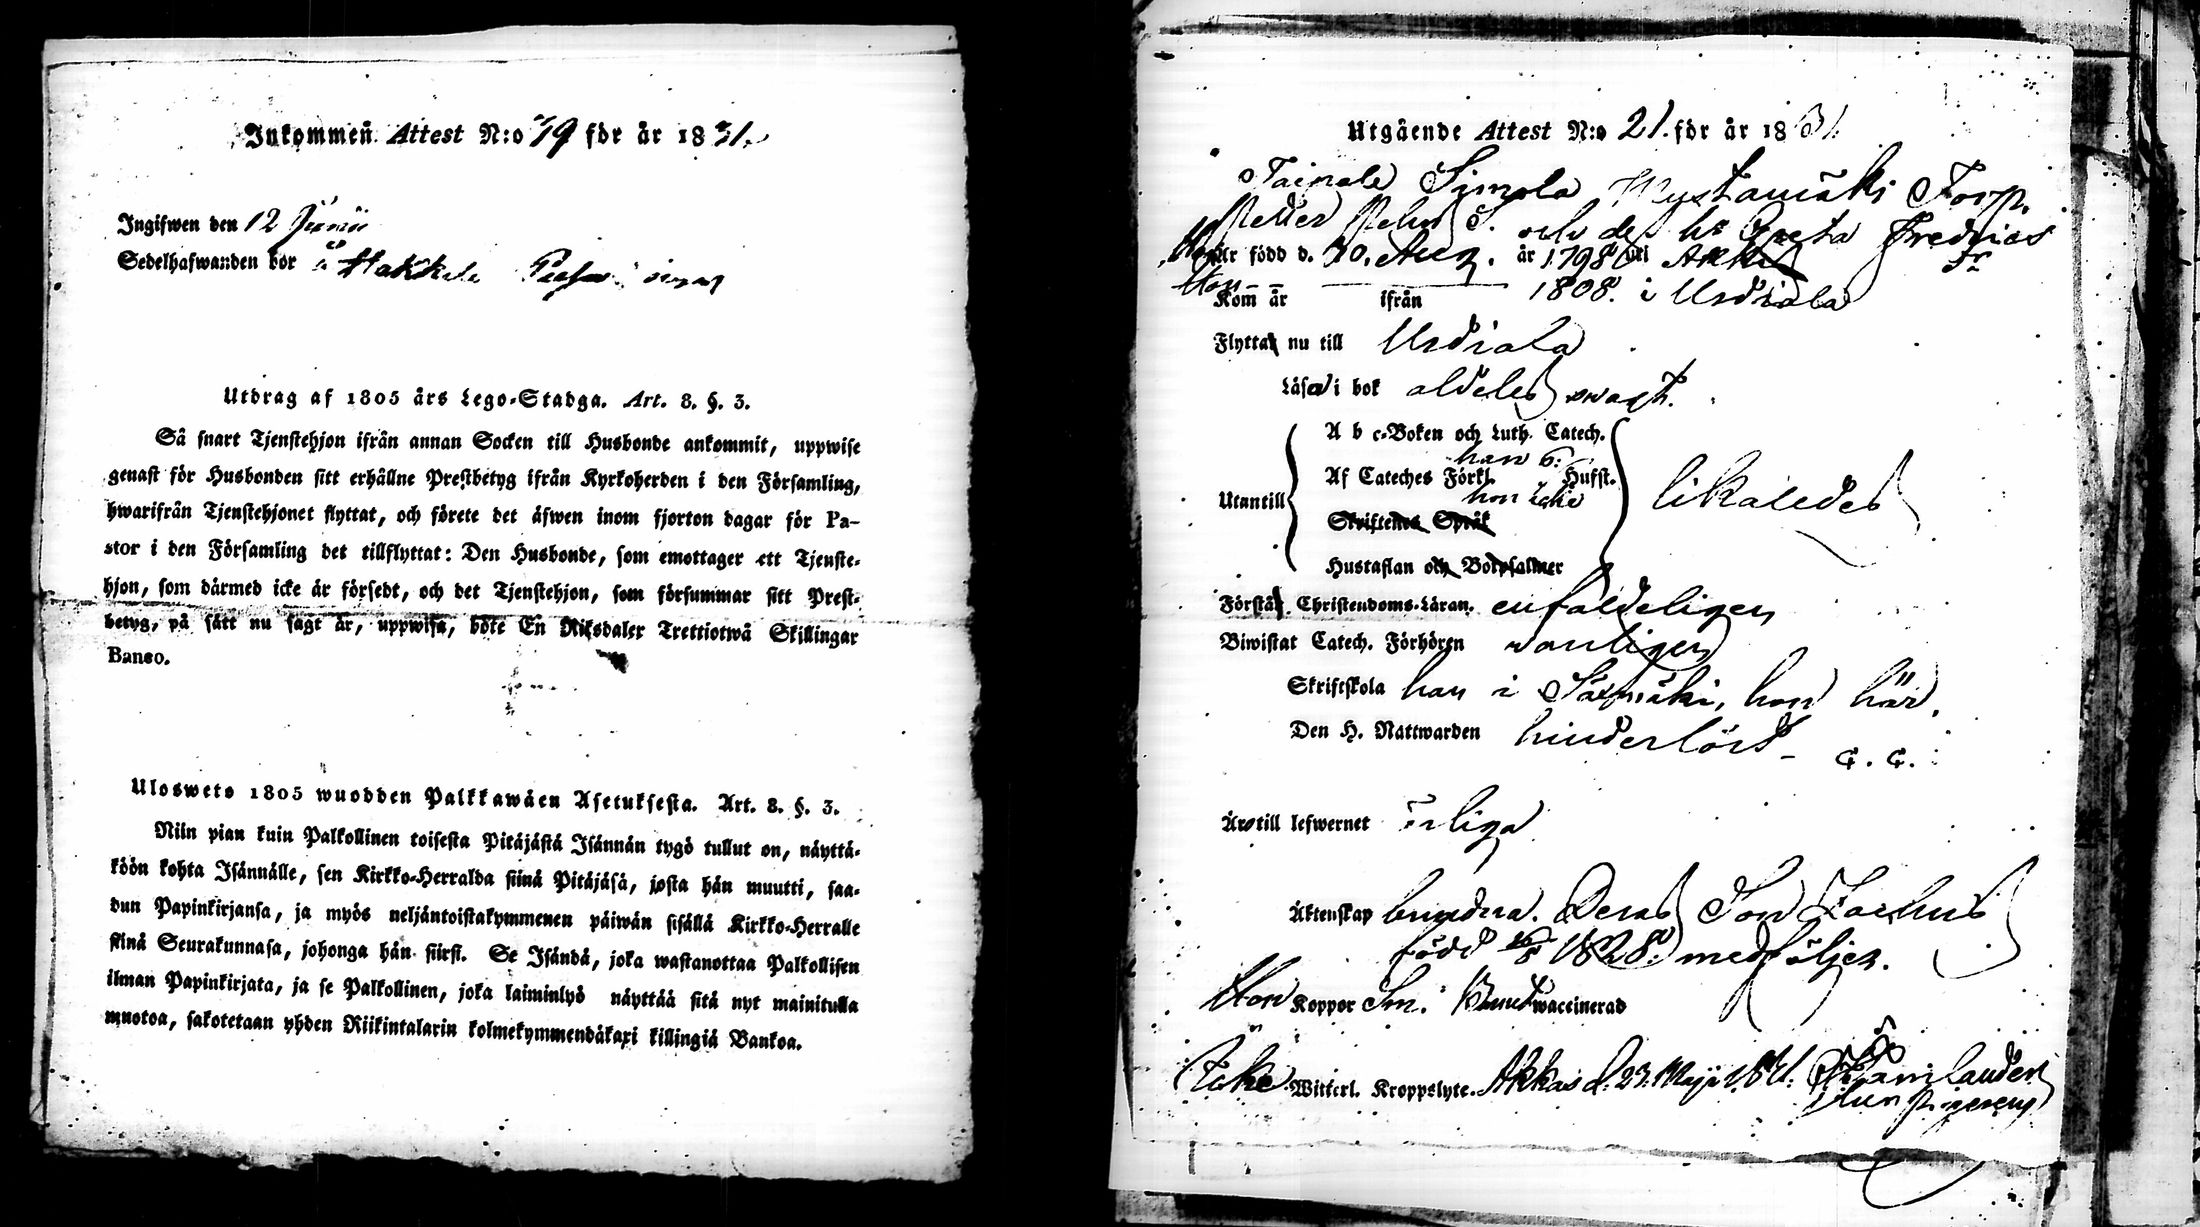 Inkommen Attest N:o 19 för år 1831.
Ingifwen den 12 Junii
Sedelhafwanden bor i Hakkila
Utdrag af 1805 års Lego-Stadga. Art. 8. §. 3.
Så snart Tjenstehjon ifrån annan Socken till Husbonde ankommit, uppwise
genast för Husbonden sitt erhållne Prestbetyg ifrån Kyrkoherden i den Församling,
hwarifrån Tjenstehjonet flyttat, och förete det äfwen inom fjorton dagar för Pa-
stor i den Församling det tillflyttat: Den Husbonde, som emottager ett Tjenste-
hjon, som därmed icke är försedt, och det Tjenstehjon, som försummar sitt Prest-
betyg, på sätt nu sagt är, uppwisa, böte En Riksdaler Trettiotwå Skillingar
Banco.
Ulosweto 1805 wuodden Palkkawäen Asetuksesta. Art. 8. §. 3.
Niin pian kuin Palkollinen toisesta Pitäjästä Isännän tygö tullut on, näyttä-
köön kohta Isännälle, sen Kirkko-Herralda siinä Pitäjäsä, josta hän muutti, saa-
dun Papinkirjansa, ja myös neljäntoistakymmenen päiwän sisällä Kirkko-Herralle
siinä Seurakunnasa, johonga hän siirsi. Se Isändä, joka wastanottaa Palkollisen
ilman Papinkirjata, ja se Palkollinen, joka laiminlyö näyttää sitä nyt mainitulla
muotoa, sakotetaan yhden Riikintalarin kolmekymmendäkaxi killingiä Bankoa.
Utgående Attest N:o 21. för år 1831.
Simola Torp.
Petter S. och des h:u Greta Fredrics dr
Han är född d. 30. Aug. år 1798 uti Akkas
Hon — — 1808. i Urdiala
Kom år ifrån
Flytta nu till Urdiala
Läsa i bok aldeles swagt.
A b c-Boken och Luth. Catech.
han 6:
Af Cateches Förkl. Hufst.
hon icke
Utantill likaledes
Skriftenes Språk
Hustaflan och Botpsalmer
Förstå Christendoms-Läran. enfaldeligen
Biwistat Catech. Förhören wanligen
Skriftskola han i Säxmäki, hon här.
Den H. Nattwarden hinderlöst - c. c.
Äro till lefwernet ärliga
Äktenskap bundna. Deras Son Zachris
född 1828. medföljer.
Hon Koppor Sm. Han waccinerad
Icke Witterl. Kroppslyte. Akkas d. 23. Maji 1831.